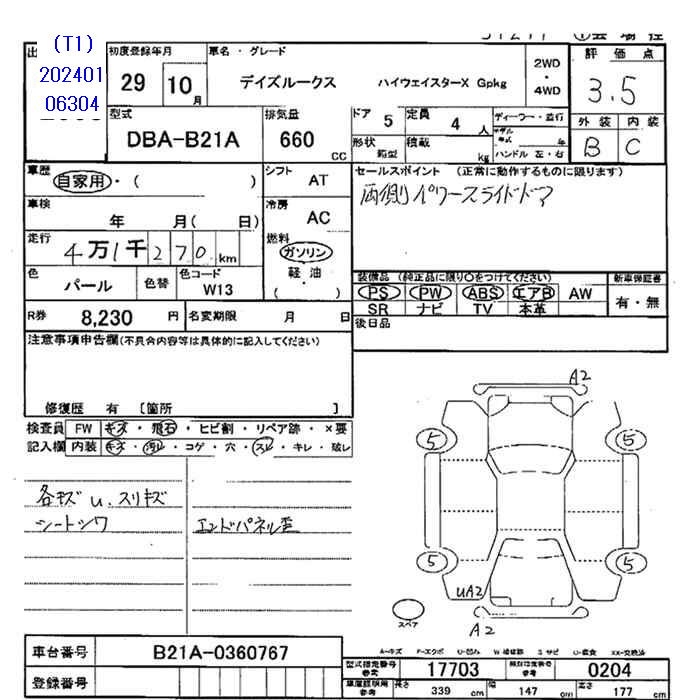 (T1)
202401
06304
初度登録年月
29 10月
車名・グレード
デイズルークス ハイウェイスターX Gpkg
2WD
・
4WD
評価点
3.5
外装 内装
B C
型式
DBA-B21A
排気量
660 cc
ドア 5
定員 4 人
形状 箱型
積載 kg
ディーラー・並行
モデル年式 年
ハンドル 左・右
車歴
自家用・( )
シフト AT
車検
年 月( 日)
冷房 AC
走行
4万1千270 km
燃料
ガソリン
軽・油
( )
色 パール
色替
色コード W13
R券 8,230 円
名変期限 月 日
セールスポイント (正常に動作するものに限ります)
両側パワースライドドア
装備品 (純正品に限り○をつけてください)
PS PW ABS エアB AW
SR ナビ TV 本革
新車保証書
有・無
後日品
注意事項申告欄(不具合内容等は具体的に記入してください)
修復歴 有 [箇所
検査員 FW キズ・飛石・ヒビ割・リペア跡・×要
記入欄 内装 キズ・汚れ・コゲ・穴・スレ・キレ・破レ
各キズ u.スリキズ
シートシワ
エンドパネル歪
A2
5 5
5 5
uA2
スペア
A2
A-キズ
車台番号 B21A-0360767
登録番号
型式指定番号参考 17703
類別区分番号参考 0204
車庫証明用参考 長さ 339 cm 幅 147 cm 高さ 177 cm